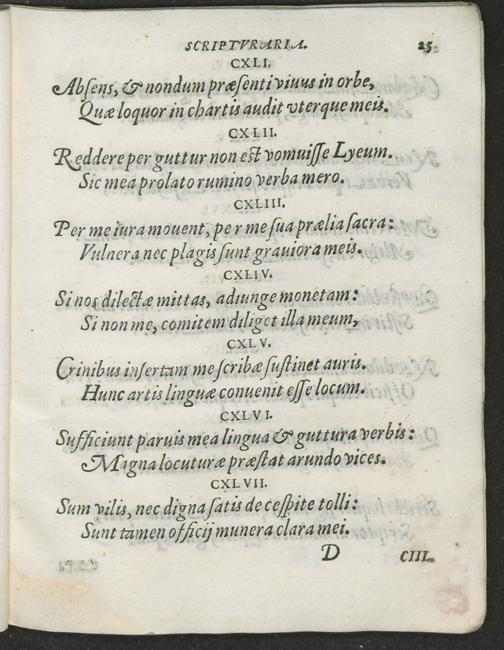 SCRIPTVRARIA. 25
CXLI.
Absens, & nondum præsenti viuus in orbe,
Quæ loquor in chartis audit vterque meis.
CXLII.
Reddere per guttur non est vomuisse Lyeum.
Sic mea prolato rumino verba mero.
CXLIII.
Per me iura mouent, per me sua prælia sacra:
Vulnera nec plagis sunt grauiora meis.
CXLIV.
Si nos dilectæ mittas, adiunge monetam:
Si non me, comitem diliget illa meum,
CXLV.
Crinibus insertam me scribæ sustinet auris.
Hunc artis linguæ conuenit esse locum.
CXLVI.
Sufficiunt paruis mea lingua & guttura verbis:
Magna locuturæ præstat arundo vices.
CXLVII.
Sum vilis, nec digna satis de cespite tolli:
Sunt tamen officij munera clara mei.
D CIII.